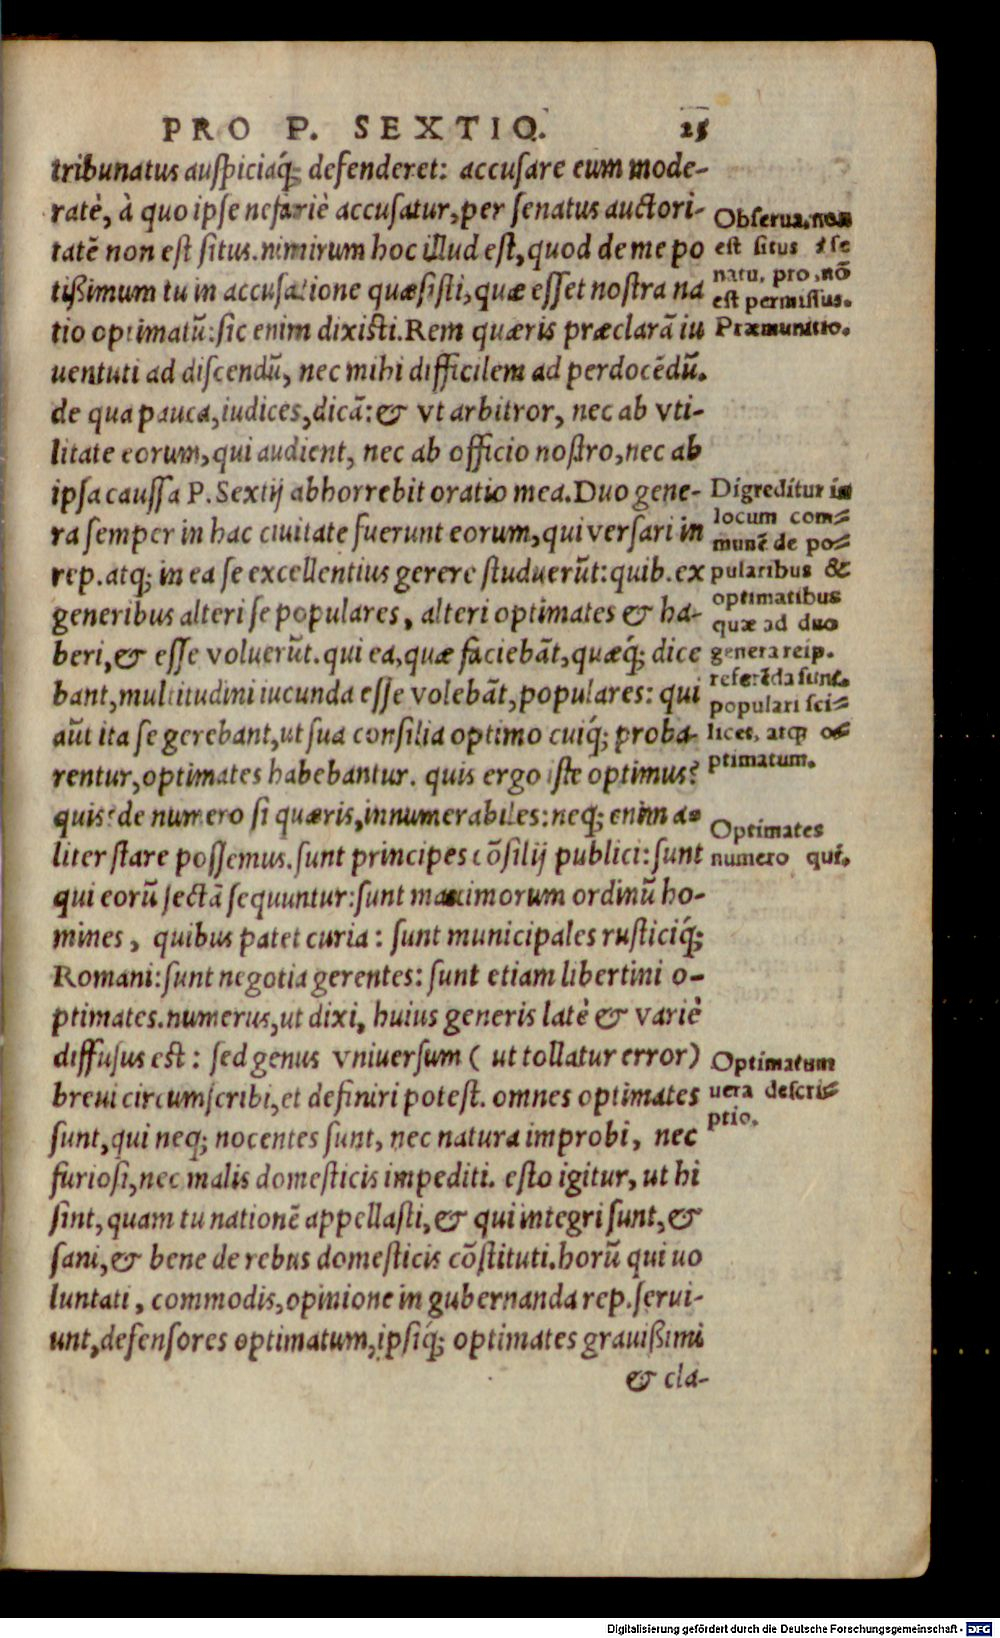 PRO P. SEXTIO. 25
tribunatus auſpiciaq́; defenderet: accuſare eum mode-
ratè, à quo ipſe nefariè accuſatur, per ſenatus auctori-
tatē non est ſitus. nimirum hoc illud eſt, quod de me po
tißimum tu in accuſatione quæſiſti, quæ eſſet noſtra na
tio optimatū: ſic enim dixiſti. Rem quæris præclarā iu
uentuti ad diſcendū, nec mihi difficilem ad perdocēdū.
de qua pauca, iudices, dicā: & vt arbitror, nec ab vti-
litate eorum, qui audient, nec ab officio noſtro, nec ab
ipſa cauſſa P. Sextij abhorrebit oratio mea. Duo gene-
ra ſemper in hac ciuitate fuerunt eorum, qui verſari in
rep. atq; in ea ſe excellentius gerere ſtuduerūt: quib. ex
generibus alteri ſe populares, alteri optimates & ha-
beri, & eſſe voluerūt. qui ea, quæ faciebāt, quæq́; dice
bant, multitudini iucunda eſſe volebāt, populares: qui
aūt ita ſe gerebant, ut ſua conſilia optimo cuiq́; proba-
rentur, optimates habebantur. quis ergo iſte optimus?
quis? de numero ſi quæris, innumerabiles: neq; enim a-
liter ſtare poſſemus. ſunt principes cōſilij publici: ſunt
qui eorū ſectā ſequuntur: ſunt maximorum ordinū ho-
mines, quibus patet curia: ſunt municipales ruſticiq́;
Romani: ſunt negotia gerentes: ſunt etiam libertini o-
ptimates. numerus, ut dixi, huius generis latè & variè
diffuſus eſt: ſed genus vniuerſum ( ut tollatur error)
breui circumſcribi, et definiri poteſt. omnes optimates
ſunt, qui neq; nocentes ſunt, nec natura improbi, nec
furioſi, nec malis domeſticis impediti. eſto igitur, ut hi
ſint, quam tu nationē appellaſti, & qui integri ſunt, &
ſani, & bene de rebus domeſticis cōſtituti. horū qui uo
luntati, commodis, opinione in gubernanda rep. ſerui-
unt, defenſores optimatum, ipſiq́; optimates grauißimi
& cla-
Obſerua, non
est ſitus à ſe
natu, pro, nō
eſt permiſſus.
Præmunitio.
Digreditur in
locum com-
munē de po-
pularibus &
optimatibus
quæ ad duo
genera reip.
referēda ſunt.
populari ſci-
licet, atq; o-
ptimatum.
Optimates
numero qui.
Optimatum
uera deſcri-
ptio.
Digitalisierung gefördert durch die Deutsche Forschungsgemeinschaft - DFG